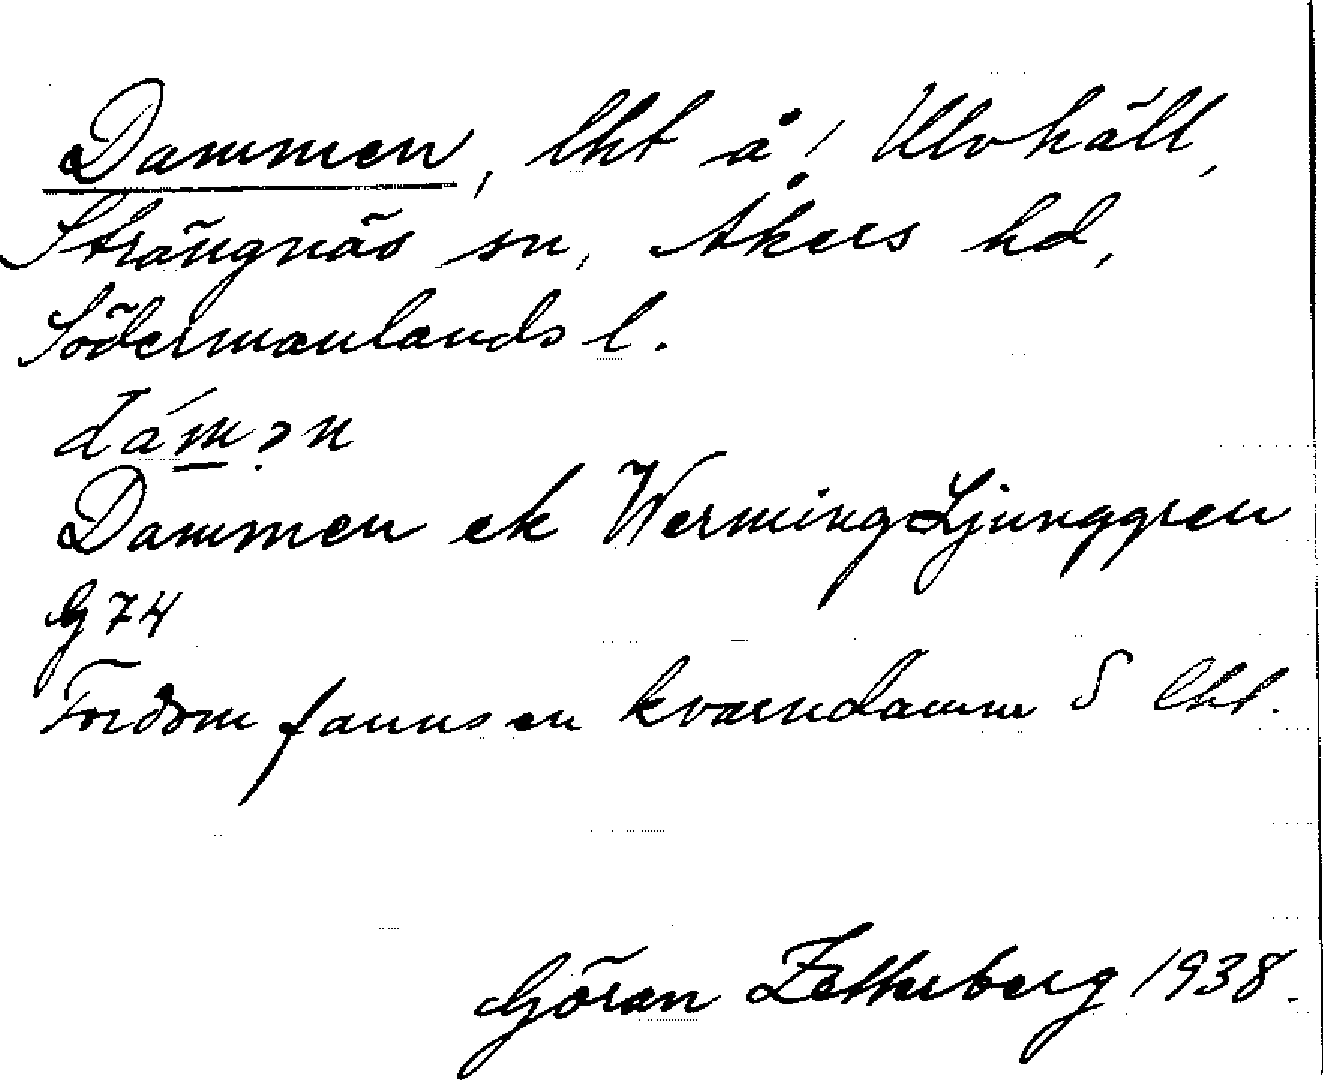 Dammen, lht å 1 Ulvhäll,
Strängnäs sn, Åkers hd,
Södermanlands l.
dám̲ən
Dammen ek Werming-Ljunggren
G 74
Fordom fanns en kvarndamm S lht.
Göran Zetterberg 1938.